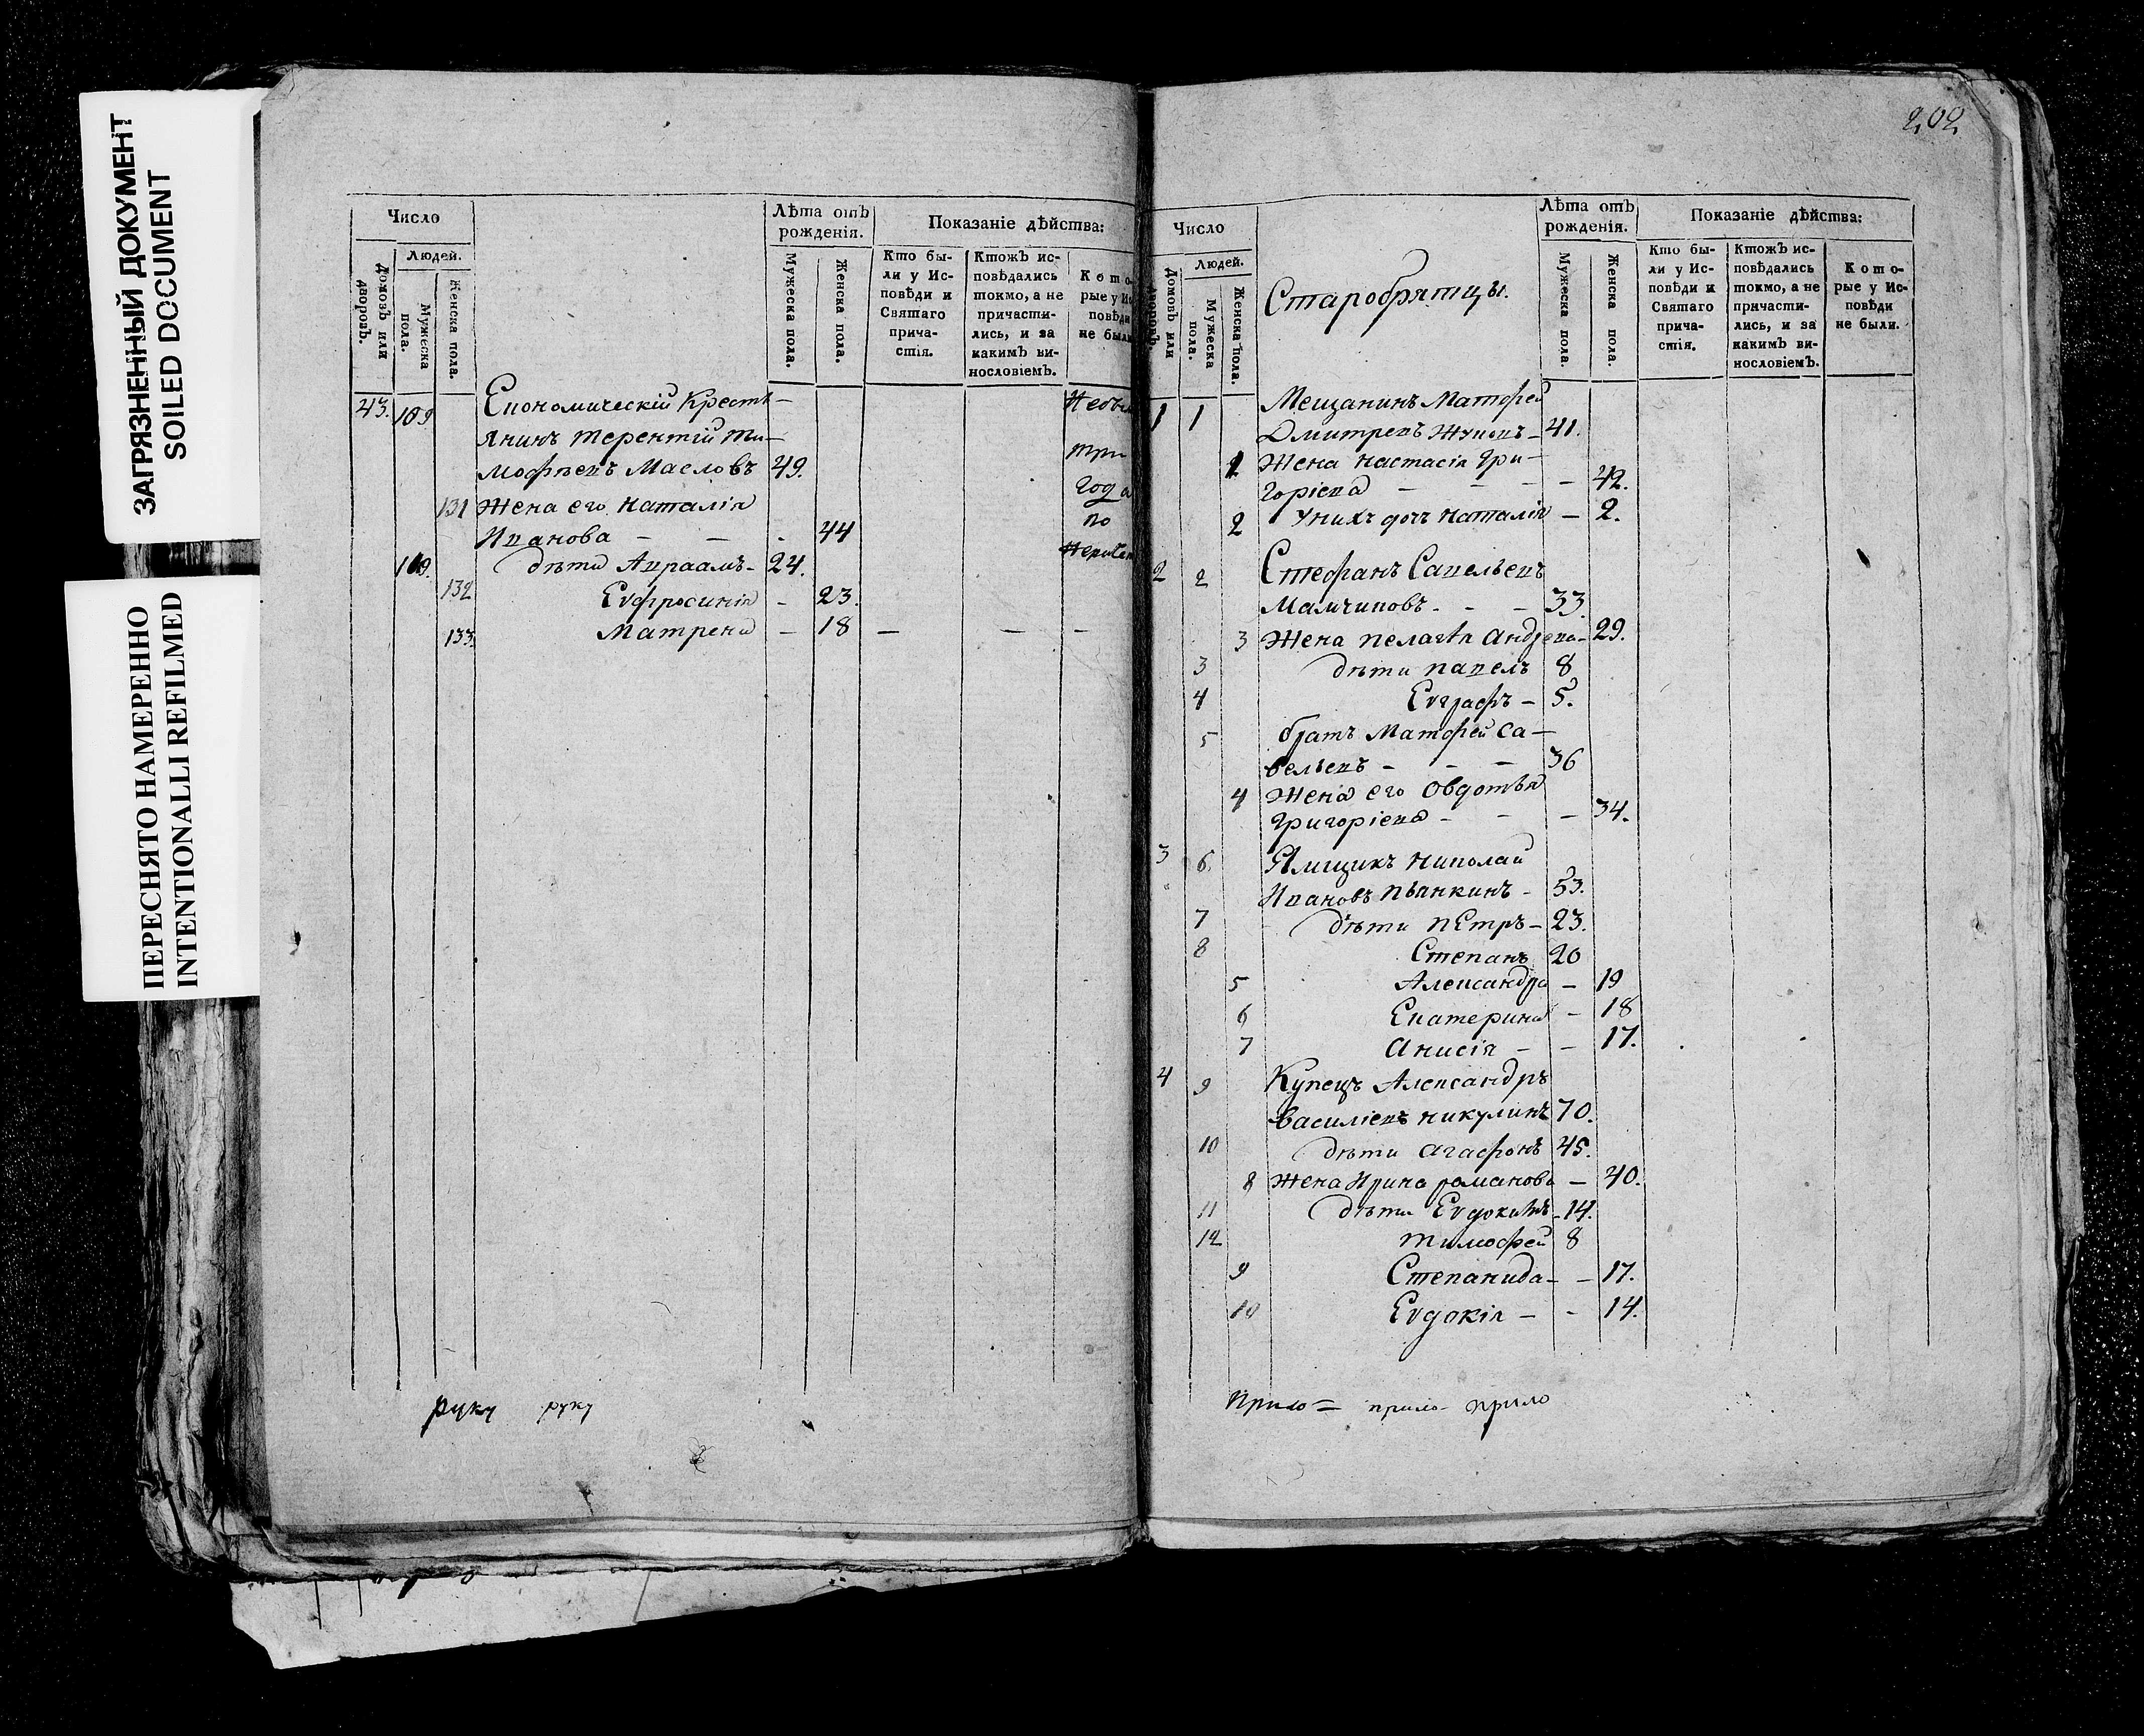 ЗАГРЯЗНЕННЫЙ ДОКУМЕНТ
SOILED DOCUMENT
ПЕРЕСНЯТО НАМЕРЕННО
INTENTIONALLI REFILMED
Число
Людей.
Домовъ или дворовъ.
Мужеска пола.
Женска пола.
Лѣта отъ рожденія.
Мужеска пола.
Женска пола.
Показаніе дѣйства:
Кто бы-
ли у Ис-
повѣди и
Святаго
прича-
стія.
Ктожъ ис-
повѣдались
токмо, а не
причасти-
лись, и за
какимъ ви-
нословіемъ.
Кото-
рые у Ис
повѣди
не были
43. 109 Економическій Кресть-
янинъ терентій Ти-
мофѣевъ Масловъ 49.
131 Жена его наталія
Иванова - - - 44
три
года
по
дѣти Авраамъ - 24.
132 Евфросинія - 23.
133. Матрена - 18 - - -
руку руку
202
Число
Людей.
Домовъ или дворовъ.
Мужеска пола.
Женска пола.
Старобрятцы.
Лѣта отъ
рожденія.
Мужеска пола.
Женска пола.
Показаніе дѣйства:
Кто бы-
ли у Ис-
повѣди и
Святаго
прича-
стія.
Ктожъ ис-
повѣдались
токмо, а не
причасти-
лись, и за
какимъ ви-
нословіемъ.
Кото-
рые у Ис-
повѣди
не были.
1 1 Мещанинъ Матфей
Дмитревъ Жуковъ - 41.
1 Жена настасія Гри-
горіева - - - - 42.
2 Унихъ дочь наталія - 2.
2 2 Стефанъ Савельевъ
Мамчиковъ - - - 33.
3 Жена пелагѣя андрева - 29.
3 дѣти павелъ 8
4 Евграфъ - 5.
5 братъ Матфей Са-
вельевъ - - - 36
4 Жена его Овдотья
григоріева - - - 34.
3 6. Ямщикъ николай
Ивановъ пьянкинъ - 53.
7 дѣти пЕтръ - 23.
8 Степанъ 20
5 Александра - 19
6 Екатерина - 18
7 анисія - - 17.
4 9 Купецъ Александръ
василіевъ никулинъ 70.
10 дѣти агафонъ 45.
8 Жена Ирина романова - 40.
11 дѣти Евдокимъ - 14.
12 тимофей 8
9 Степанида - - 17.
10 Евдокія - - 14.
Прило= прило- прило